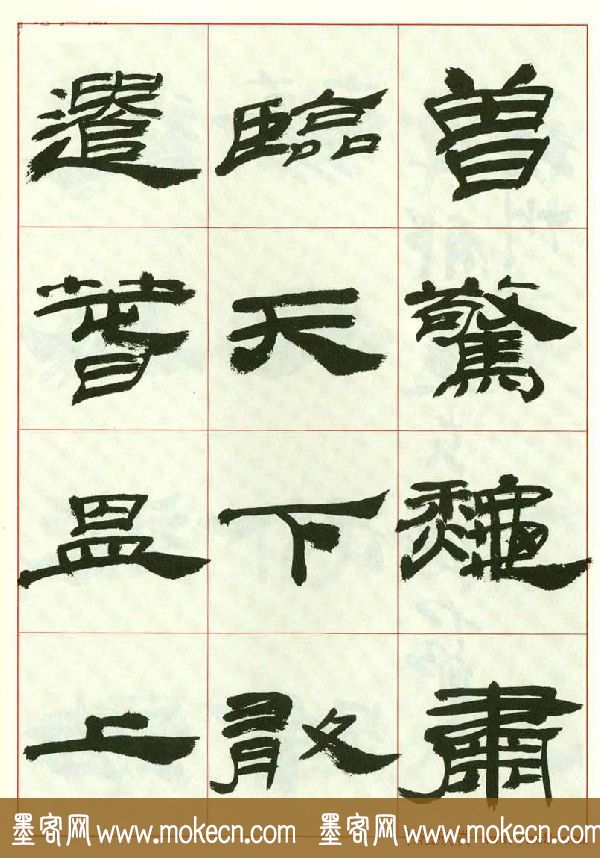 曾驚肅
臨天下敢
遣昷上
墨客网 www.mokecn.com 墨客网 www.mokecn.com